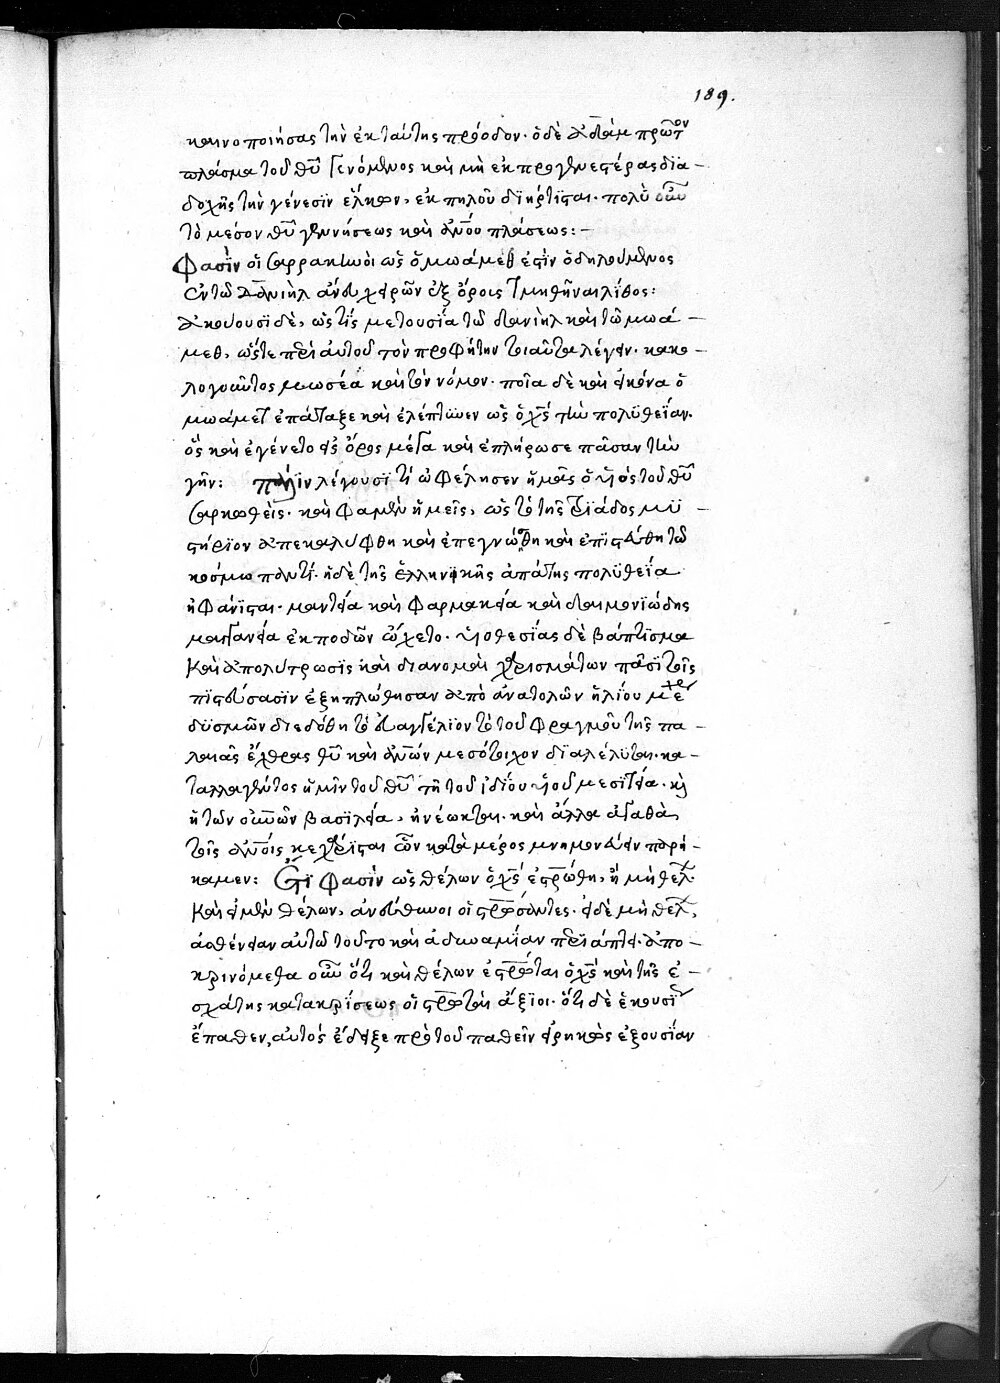 189.
καινοποιήσας τὴν ἐκ ταύτης πρόοδον· ὁ δὲ ἀδὰμ πρῶτον
πλάσμα τοῦ θῦ γενόμενος καὶ μὴ ἐκ προγενεστέρας δϊα-
δοχῆς τὴν γένεσϊν εἴληφεν, ἐκ πηλοῦ διήρτϊσται· πολὺ οὖν
τὸ μέσον θῦ γεννήσεως καὶ ἀνου πλάσεως:-
Φασὶν οἱ σαρρακινοὶ ὡς ὁ μωάμεθ ἐστὶν ὁ δηλούμενος
ἐν τῶ δανιὴλ ἄνευ χειρῶν ἐξ ὄρους τμηθῆναι λίθος:
ἀκούουσϊ δὲ, ὡς τίς μετουσία τῶ δανιὴλ καὶ τῶ μωά-
μεθ, ὥστε περὶ αὐτοῦ τὸν προφήτην τοιαῦτα λέγειν· κακο-
λογοῦντος μωσέα καὶ τὸν νόμον· ποῖα δὲ καὶ εἰκόνα ὁ
μωάμετ ἐπάταξε καὶ ἐλέπτυνεν ὡς ὁ χς τὴν πολυθεΐαν·
ὃς καὶ ἐγένετο εἰς ὄρος μέγα καὶ ἐπλήρωσε πᾶσαν τὴν
γῆν: πάλϊν λέγουσϊ τί ὠφέλησεν ἡμᾶς ὁ υἱὸς τοῦ θῦ
σαρκωθεὶς· καὶ φαμὲν ἡμεῖς, ὡς τὸ τῆς τρϊάδος μυ-
στήρϊον ἀπεκαλύφθη καὶ ἐπεγνώσθη καὶ ἐπϊστεύθη τῶ
κόσμω παντί· ἡ δὲ τῆς ἑλληνϊκῆς ἀπάτης πολυθεΐα
ἠφάνϊσται· μαντεία καὶ φαρμακεία καὶ δαιμονϊώδης
μαγγανεία ἐκποδῶν ᾤχετο· υἱοθεσίας δὲ βάπτϊσμα
καὶ ἀπολύτρωσϊς καὶ διανομαὶ χαρισμάτων πᾶσϊ τοῖς
πϊστεύσασϊν ἐξηπλώθησαν ἀπὸ ἀνατολῶν ἡλίου μέχρι
δϋσμῶν διεδόθη τὸ εὐαγγέλϊον τὸ τοῦ φραγμοῦ τῆς πα-
λαιᾶς ἔχθρας θῦ καὶ ἀνων μεσότοιχον δϊαλέλϋται· κα-
ταλλαγέντος ἡμῖν τοῦ θῦ τῆ τοῦ ἰδίου υἱοῦ μεσϊτεία· καὶ
ἡ τῶν οὐνῶν βασϊλεία, ἠνέωκται· καὶ ἄλλα ἀγαθὰ
τοῖς ἀνοις κεχάρϊσται ὧν κατὰ μέρος μνημονεύειν παρή-
καμεν: Ἔτϊ φασὶν ὡς θέλων ὁ χς ἐστρώθη, ἢ μὴ θέλ·
καὶ εἰ μὲν θέλων, ἀνεύθυνοι οἱ στρώσαντες· εἰ δὲ μὴ θέλ,
ἀσθένειαν αὐτῶ τοῦτο καὶ ἀδυναμΐαν περιάπτει· ἀπο-
κρινόμεθα οὖν ὅτι καὶ θέλων ἐστρωται ὁ χς καὶ τῆς ἐ-
σχάτης κατακρίσεως οἱ στρωταὶ ἄξϊοι· ὅτι δὲ ἑκουσΐ
ἔπαθεν, αὐτὸς ἔδειξε πρὸ τοῦ παθεῖν εἰρηκὼς ἐξουσίαν